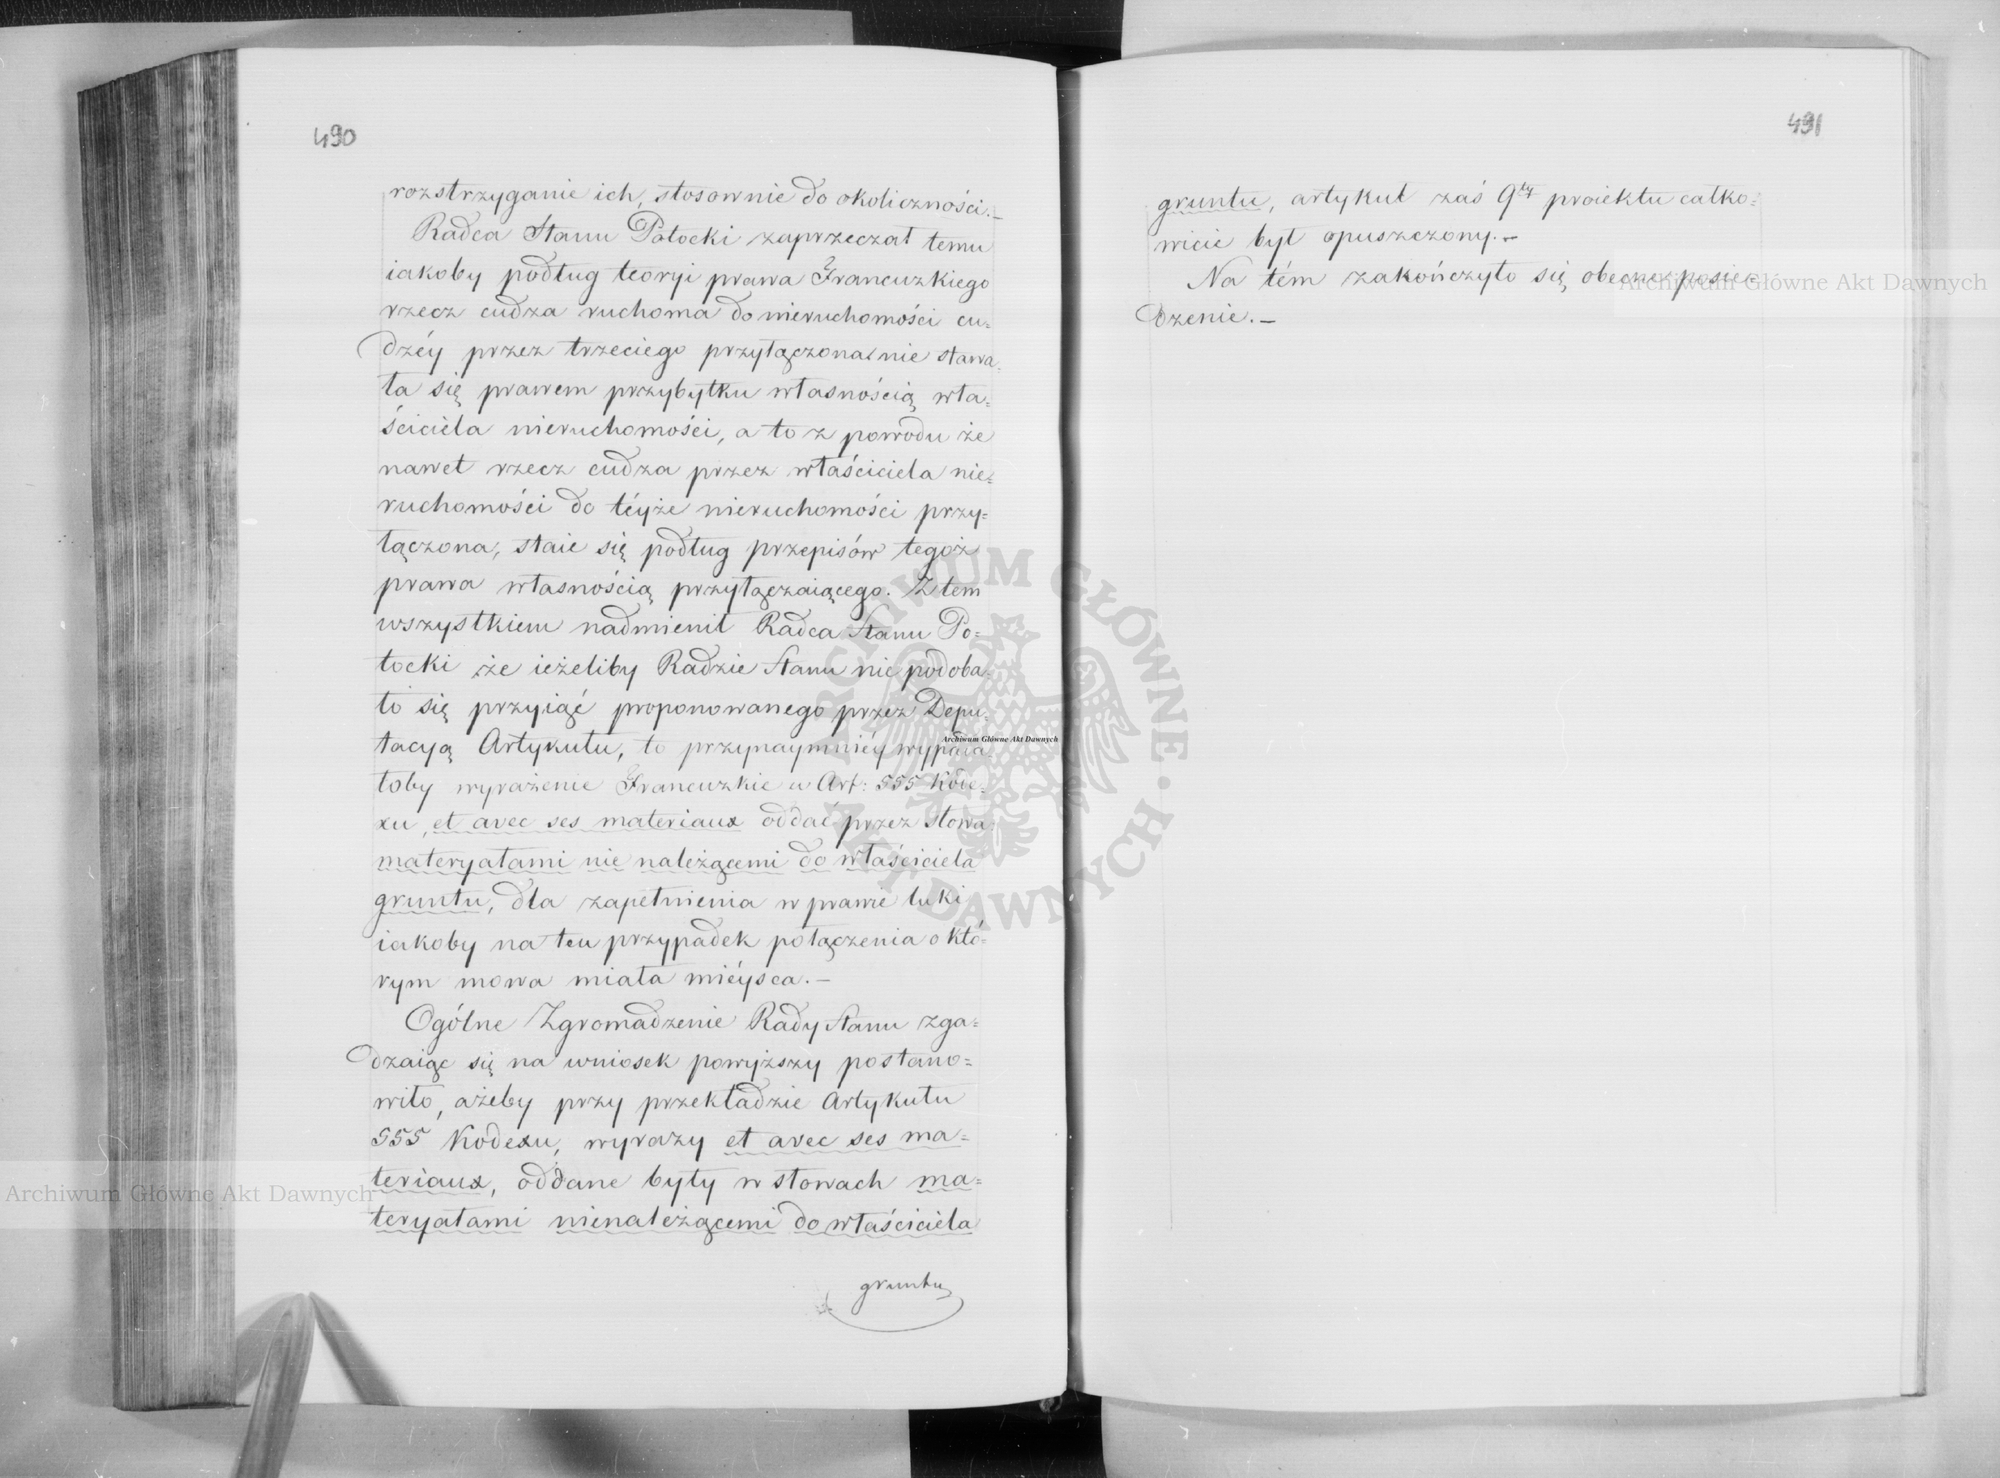 490
rozstrzyganie ich, stosownie do okoliczności.—
Radca Stanu Potocki zaprzeczał temu
iakoby podług teoryi prawa Francuzkiego
rzecz cudza ruchoma do nieruchomości cu=
dzéy przez trzeciego przyłączona nie stawa=
ła się prawem przybytku własnością wła=
ściciela nieruchomości, a to z powodu że
nawet rzecz cudza przez właściciela nie=
ruchomości do téyże nieruchomości przy=
łączona, staie się podług przepisów tegoż
prawa własnością przyłączaiącego. Z tem
wszystkiem nadmienił Radca Stanu Po=
tocki że ieżeliby Radzie Stanu nie podoba=
ło się przyiąć proponowanego przez Depu=
tacyą Artykułu, to przynaymniéy wypada=
łoby wyrażenie Francuzkie w Art: 555 Kode=
xu, et avec ses materiaux oddać przez słowa
materyałami nie należącemi do właściciela
gruntu, dla zapełnienia w prawie luki
iakoby na ten przypadek połączenia o któ=
rym mowa miała mieysca.—
Ogólne Zgromadzenie Rady Stanu zga=
dzaiąc się na wniosek powyższy postano=
wiło, ażeby przy przekładzie Artykułu
555 Kodexu, wyrazy et avec ses ma=
teriaux, oddane były w słowach ma=
teryałami nienależącemi do właściciela
gruntu
491
gruntu, artykuł zaś 9ty proiektu całko=
wicie był opuszczony.—
Na tém zakończyło się obecne posie=
dzenie.—
Archiwum Główne Akt Dawnych
Archiwum Główne Akt Dawnych
Archiwum Główne Akt Dawnych
ARCHIWUM GŁÓWNE · AKT DAWNYCH ·